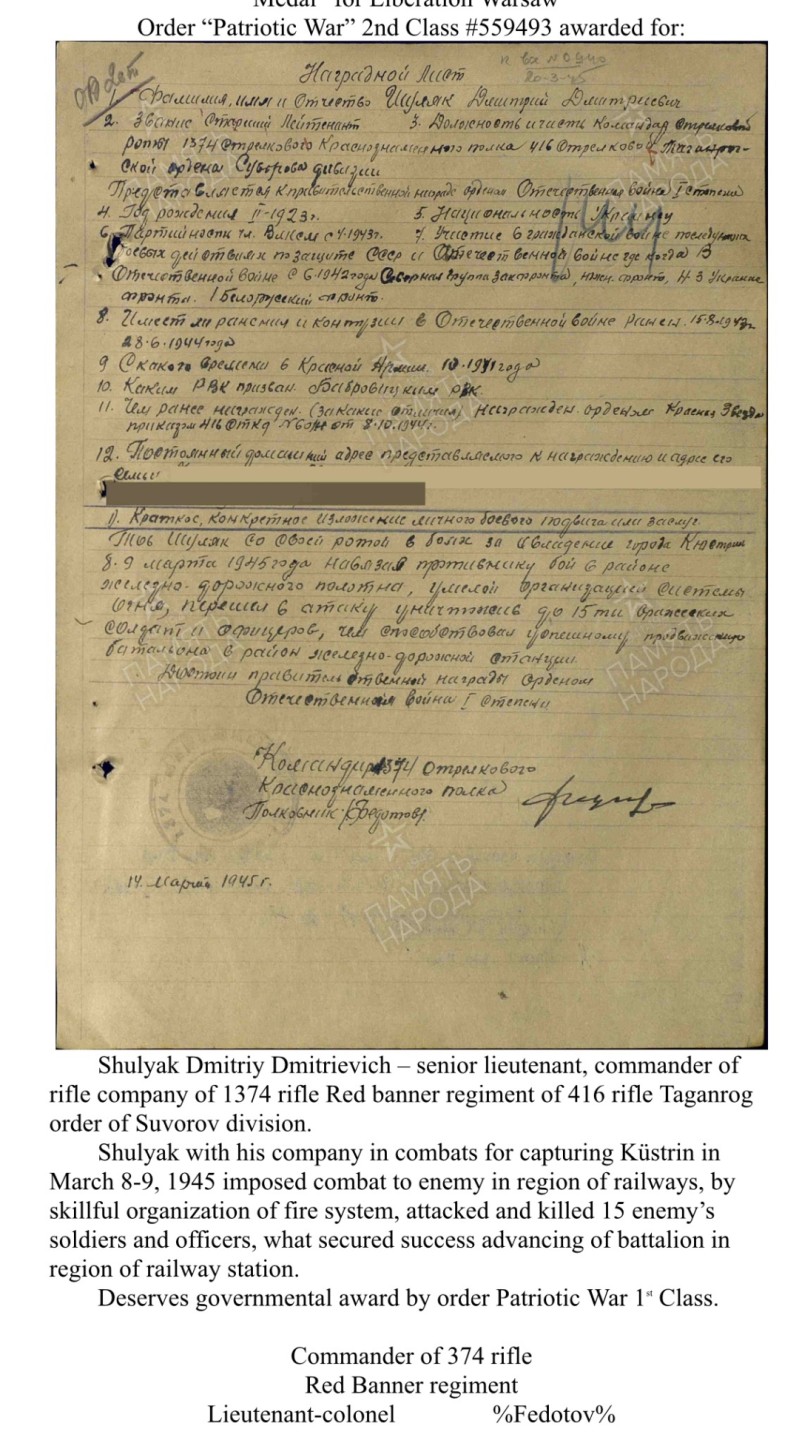 Medal "for Liberation Warsaw"
Order “Patriotic War” 2nd Class #559493 awarded for:
20-3-45
Наградной Лист
1. Фамилия, имя и Отчество Шуляк Дмитрий Дмитриевич
2. Звание Старший Лейтенант 3. Должность и часть Командир Стрелковой
роты 1374 Стрелкового Краснознаменного полка 416 Стрелковой Таганрог-
ской ордена Суворова дивизии
Представляется к правительственной награде орденом Отечественная война I степени
4. Год рождения 1923г. 5. Национальность Украинец
6. Партийность чл. ВЛКСМ с 1943г. 7. Участие в гражданской войне последующих
боевых действиях по защите СССР и Отечественной войне где когда В
Отечественной войне с 6.1942 года Северная группа Закфронта, Южн. фронт, Н-3 Украинс
фронты. 1 Белорусский фронт.
8. Имеет ли ранения и контузии в Отечественной войне ранен. 15.8.1943г
28.6.1944 года
9 С какого времени в Красной Армии. 10.1941 года
10. Каким РВК призван. РВК
11. Чем ранее награжден. (за какие отличия) Награжден орденом Красная Звезда
приказом 416 от 8.10.1944г.
12. Постоянный домашний адрес представляемого к награждению и адрес его
семьи
1). Краткое, конкретное изложение личного боевого подвига или заслуг.
Тов Шуляк со своей ротой в боях за овладение города Кюстрин
8.9 марта 1945 года навязал противнику бой в районе
железно-дорожного полотна, умелой организацией системы
огня, перешел в атаку уничтожив до 15ти вражеских
солдат и офицеров, чем способствовал успешному продвижению
батальона в район железно-дорожной станции.
Достоин правительственной награды Орденом
Отечественная война I степени
Командир 1374 Стрелкового
Краснознаменного полка
Полковник /Федотов/
14 марта 1945г.
ПАМЯТЬ
НАРОДА
Shulyak Dmitriy Dmitrievich – senior lieutenant, commander of
rifle company of 1374 rifle Red banner regiment of 416 rifle Taganrog
order of Suvorov division.
Shulyak with his company in combats for capturing Küstrin in
March 8-9, 1945 imposed combat to enemy in region of railways, by
skillful organization of fire system, attacked and killed 15 enemy’s
soldiers and officers, what secured success advancing of battalion in
region of railway station.
Deserves governmental award by order Patriotic War 1st Class.
Commander of 374 rifle
Red Banner regiment
Lieutenant-colonel %Fedotov%